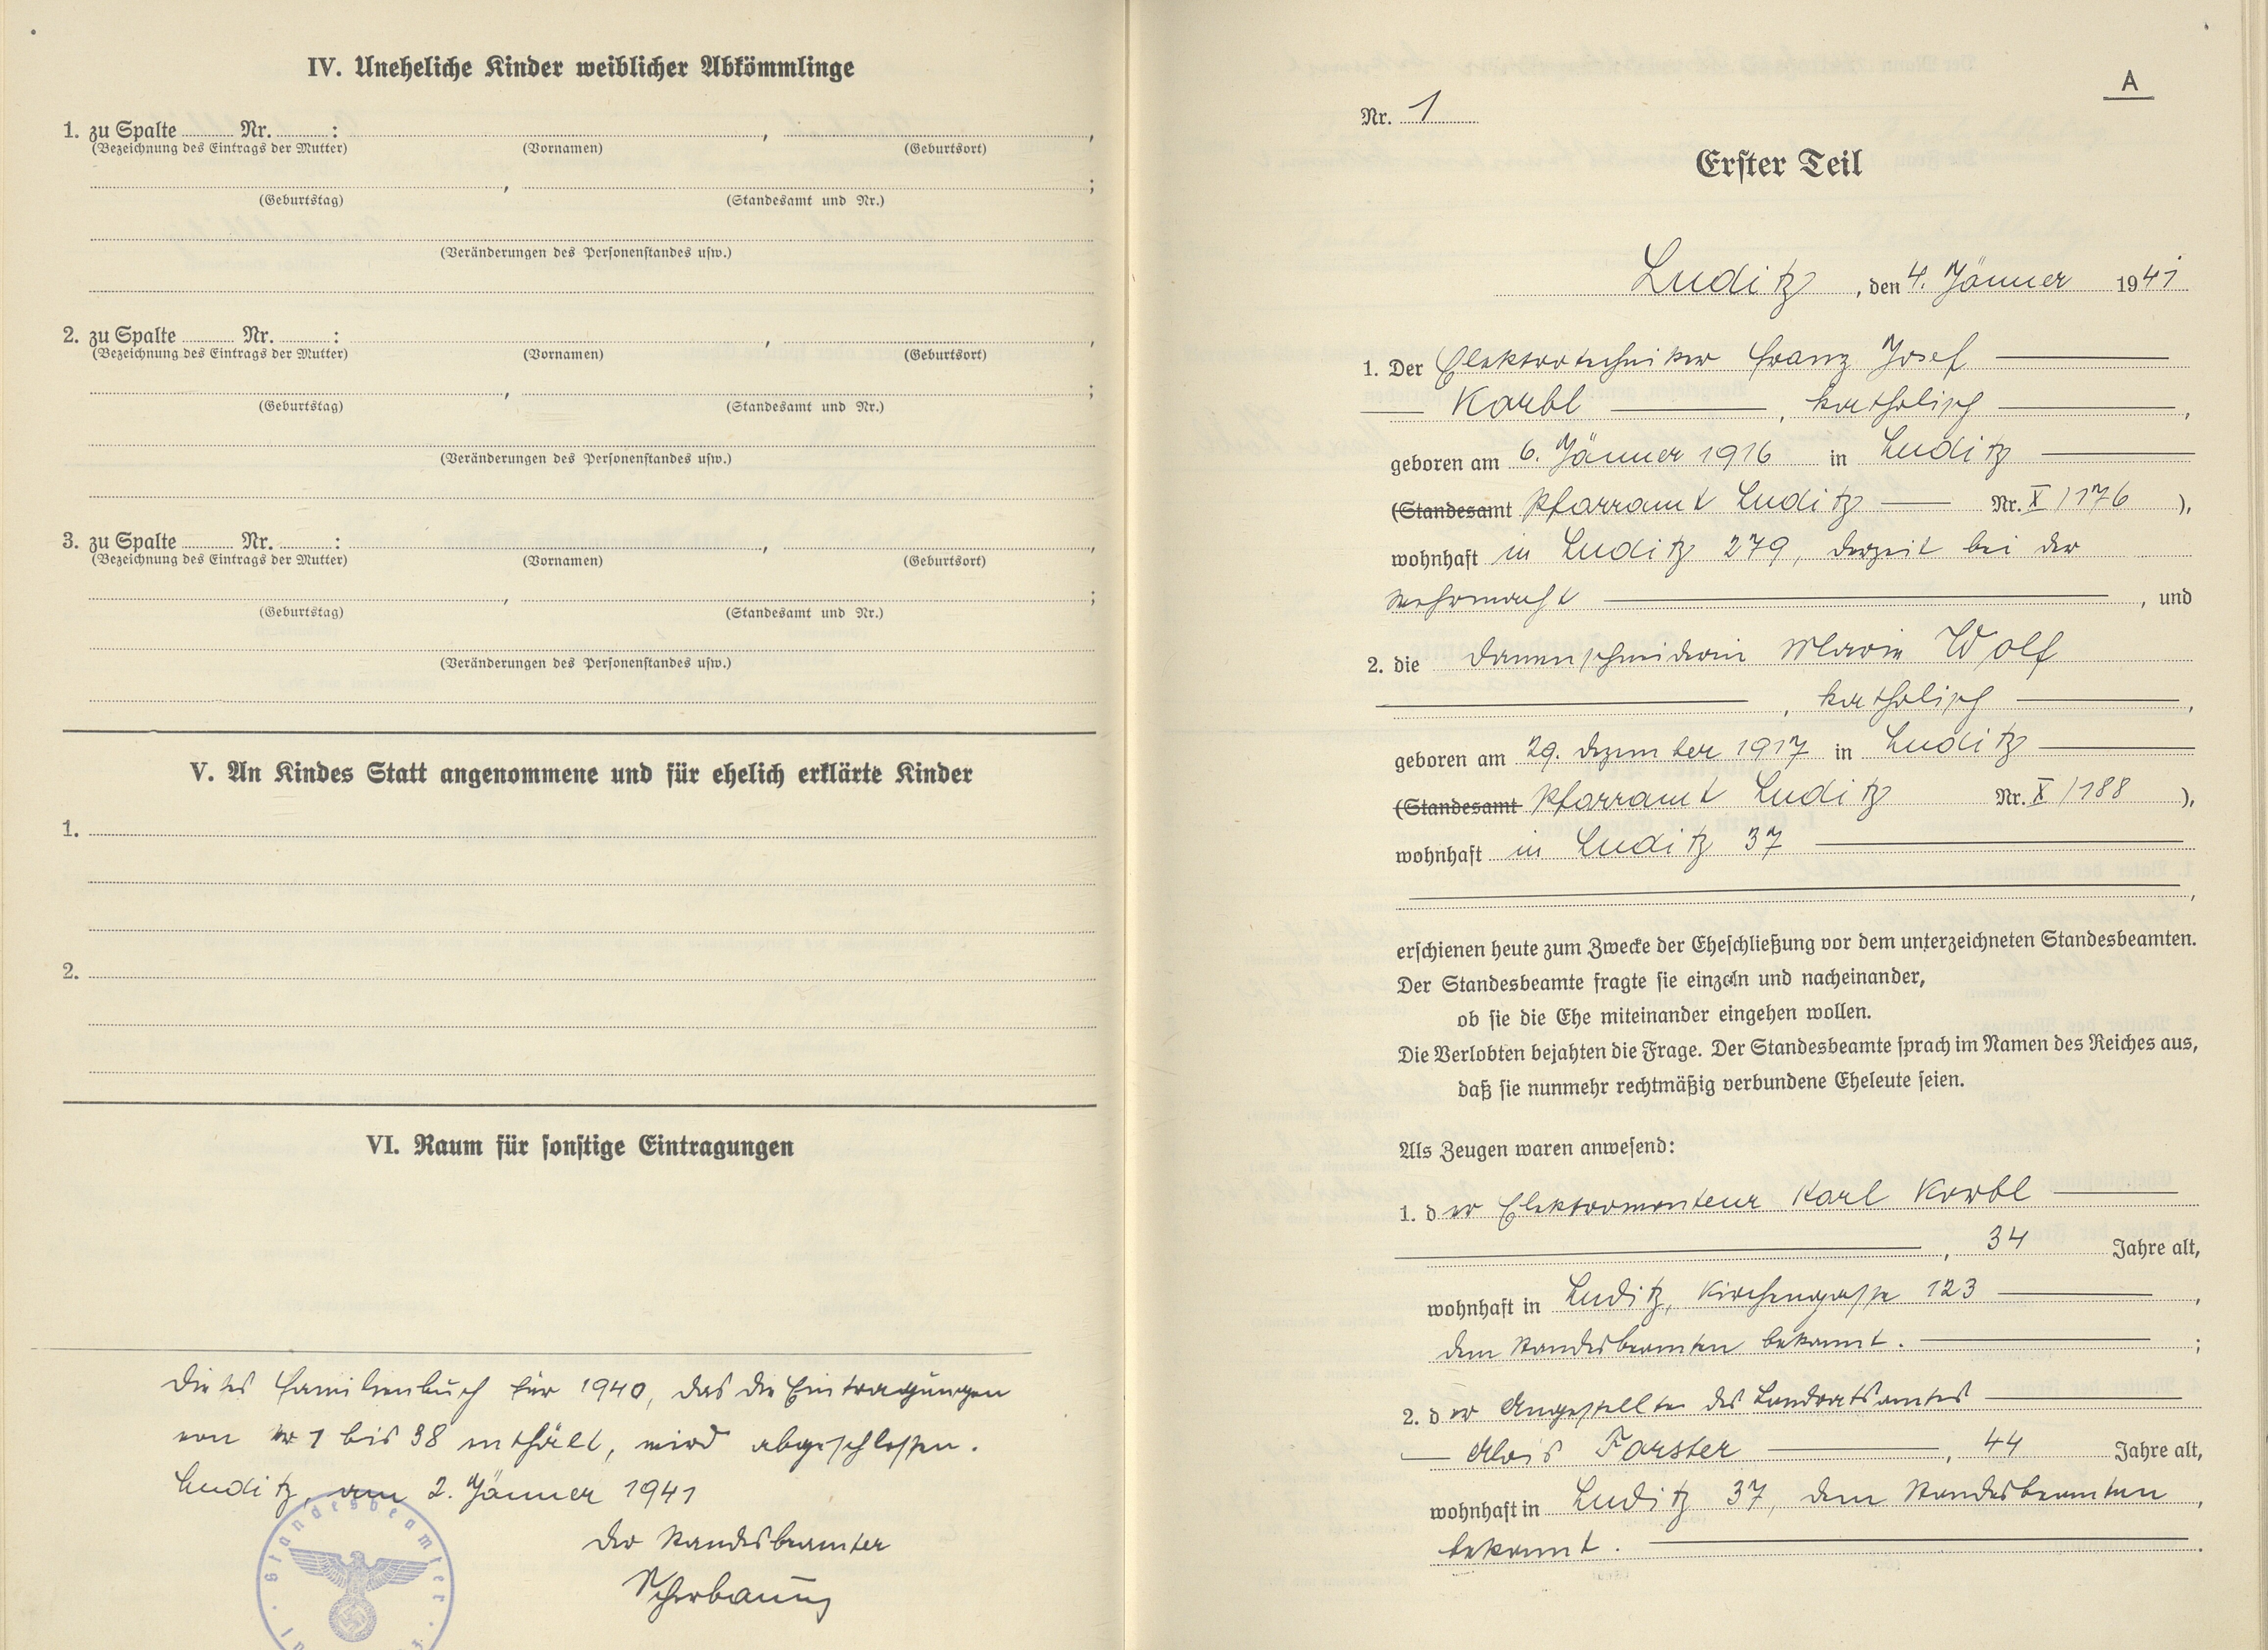 IV. Uneheliche Kinder weiblicher Abkömmlinge
1. zu Spalte ........ Nr. ........ : , ,
(Bezeichnung des Eintrags der Mutter) (Vornamen) (Geburtsort)
, ;
(Geburtstag) (Standesamt und Nr.)
(Veränderungen des Personenstandes usw.)
2. zu Spalte ........ Nr. ........ : , ,
(Bezeichnung des Eintrags der Mutter) (Vornamen) (Geburtsort)
, ;
(Geburtstag) (Standesamt und Nr.)
(Veränderungen des Personenstandes usw.)
3. zu Spalte ........ Nr. ........ : , ,
(Bezeichnung des Eintrags der Mutter) (Vornamen) (Geburtsort)
, ;
(Geburtstag) (Standesamt und Nr.)
(Veränderungen des Personenstandes usw.)
V. An Kindes Statt angenommene und für ehelich erklärte Kinder
1.
2.
VI. Raum für sonstige Eintragungen
Dieses Familienbuch für 1940, das die Eintragungen
von Nr 1 bis 38 enthält, wird abgeschlossen.
Luditz, am 2. Jänner 1941
Der Standesbeamter
Standesbeamter
A
Nr. 1
Erster Teil
Luditz, den 4. Jänner 1941
1. Der Elektrotechniker Franz Josef
Korbl, katholisch,
geboren am 6. Jänner 1916 in Luditz
(Standesamt Pfarramt Luditz Nr. X/176 ),
wohnhaft in Luditz 279, derzeit bei der
Wehrmacht, und
2. die Damenschneiderin Marie Wolf
, katholisch,
geboren am 29. Dezember 1917 in Luditz
(Standesamt Pfarramt Luditz Nr. X/188 ),
wohnhaft in Luditz 37
,
erschienen heute zum Zwecke der Eheschließung vor dem unterzeichneten Standesbeamten.
Der Standesbeamte fragte sie einzeln und nacheinander,
ob sie die Ehe miteinander eingehen wollen.
Die Verlobten bejahten die Frage. Der Standesbeamte sprach im Namen des Reiches aus,
daß sie nunmehr rechtmäßig verbundene Eheleute seien.
Als Zeugen waren anwesend:
1. der Elektromonteur Karl Korbl
, 34 Jahre alt,
wohnhaft in Luditz, Kirchengasse 123,
dem Standesbeamten bekannt. ;
2. der Angestellte des Landratsamtes
Alois Forster, 44 Jahre alt,
wohnhaft in Luditz 37, dem Standesbeamten,
bekannt.